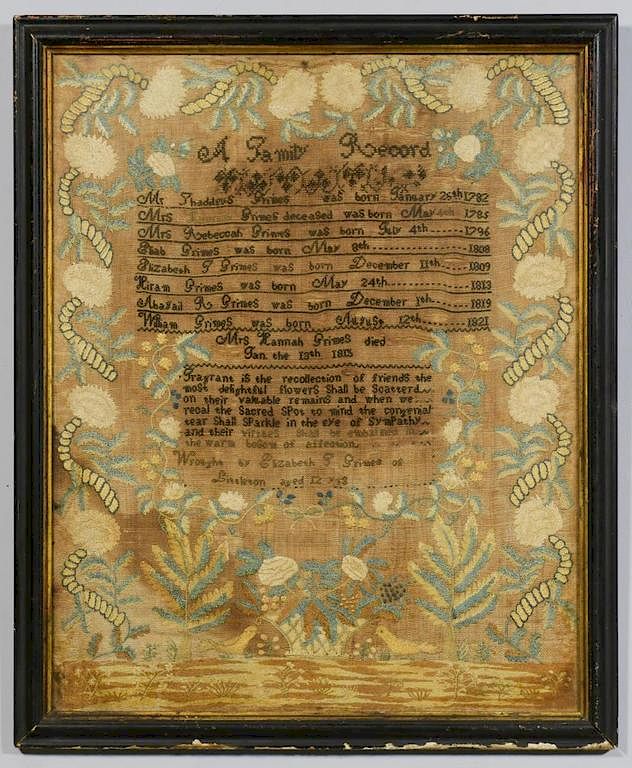 A Family Record
Mr Thaddeus Grimes was born January 26th 1782
Mrs Grimes deceased was born May 4th 1785
Mrs Rebeccah Grimes was born July 4th 1796
Grimes was born May 8th 1808
Elizabeth T Grimes was born December 11th 1809
Hiram Grimes was born May 24th 1813
Abagail R Grimes was born December 1th 1819
William Grimes was born August 12th 1821
Mrs Hannah Grimes died
Jan. the 13th 1815
Fragrant is the recollection of friends the
most delightful flowers Shall be Scatterd
on their valuable remains and when we
recal the Sacred Spot to mind the congenial
tear Shall Sparkle in the eye of Sympathy
and their virtues Shall be embalmed in
the warm bosom of affection
Wrought by Elizabeth T Grimes of
Littleton aged 12